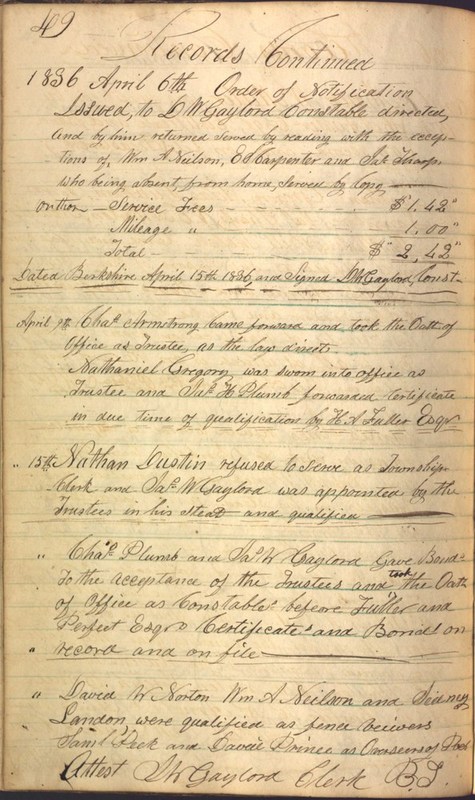 49
Records Continued
1836 April 6th Order of Notification
Issued, to D W Gaylord Constable directed,
and by him returned served by reading with the excep-
tions of, Wm A Neilson, E S Carpenter and Jas Tharp
who being absent, from home, served by copy
on them - Service Fees - - - $1.42"
Mileage " - - - 1.00"
Total - - - $" 2,42"
Dated Berkshire April 15th 1836, and Signed D W Gaylord, Const-
April 9th Chas Armstrong Came forward and took the Oath of
Office as Trustee, as the law directs
Nathaniel Gregory, was sworn into office as
Trustee and Jas H Plumb forwarded Certificate
in due time of qualification by H A Fuller Esqr
" 15th Nathan Dustin refused to serve as Township
Clerk and Jas W Gaylord was appointed by the
Trustees in his Stead and qualified
" Chas Plumb and Jas W Gaylord Gave Bond
To the acceptance of the Trustees and took the Oath
of Office as Constables before Fuller and
Perfect Esqrs Certificates and Bonds on
" record and on file
" David W Norton Wm A Neilson and Sidney
Landon were qualified as fence veiwers
Saml Peck and David Prince as Overseers of Poor
Attest W Gaylord Clerk B.T.